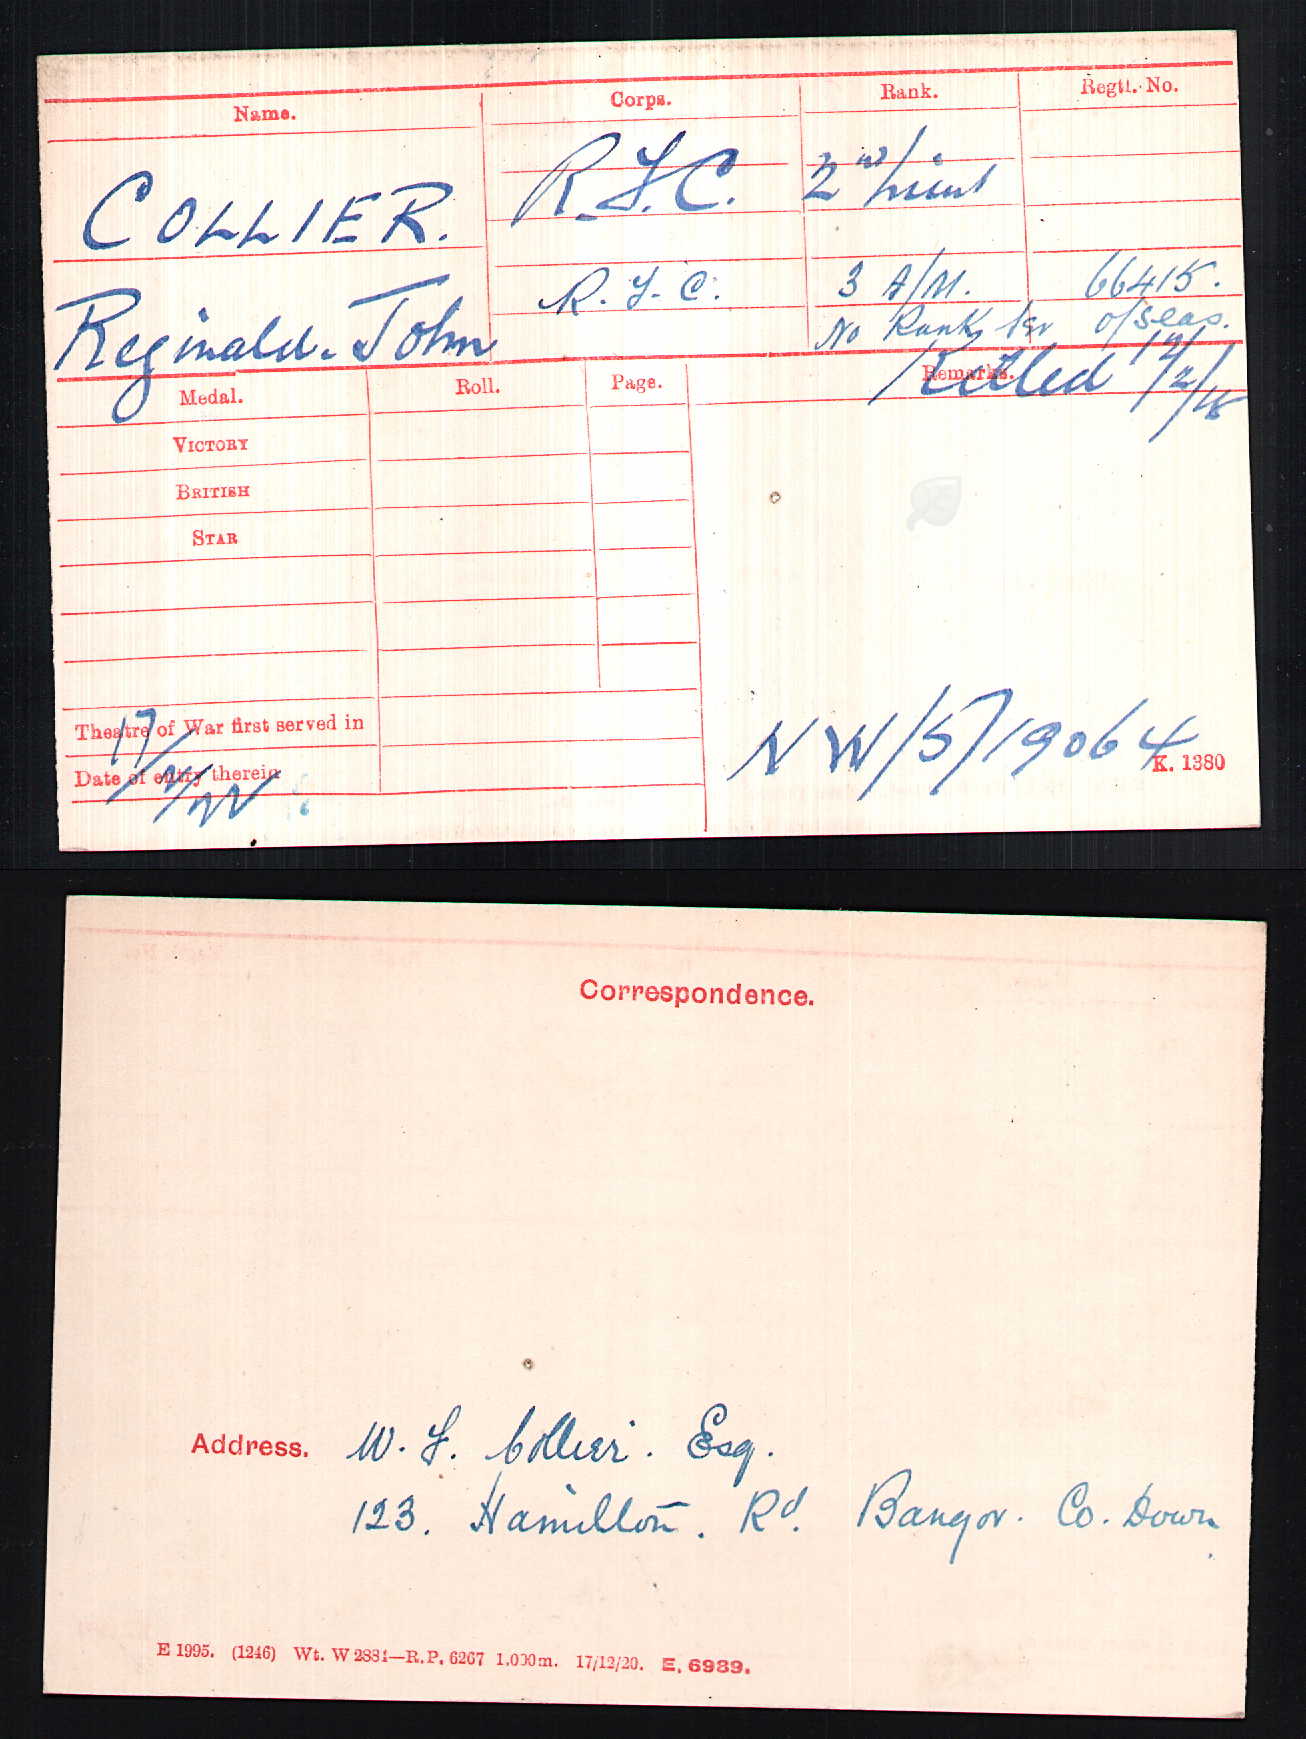 Name. Corps. Rank. Regtl. No.
COLLIER. R.F.C. 2nd/Lieut
Reginald. John R.F.C. 3 A/M. 66415.
No Rank, Ser o/seas.
Medal. Roll. Page. Remarks. Killed 12/2/18
VICTORY
BRITISH
STAR
Theatre of War first served in
Date of entry therein
17/4/22
NW/5/19064
K. 1380
Correspondence.
Address. W. F. Collier. Esq.
123. Hamilton. Rd. Bangor. Co. Down
E 1995. (1246) Wt. W 2884—R.P. 6267 1,000m. 17/12/20. E. 6989.